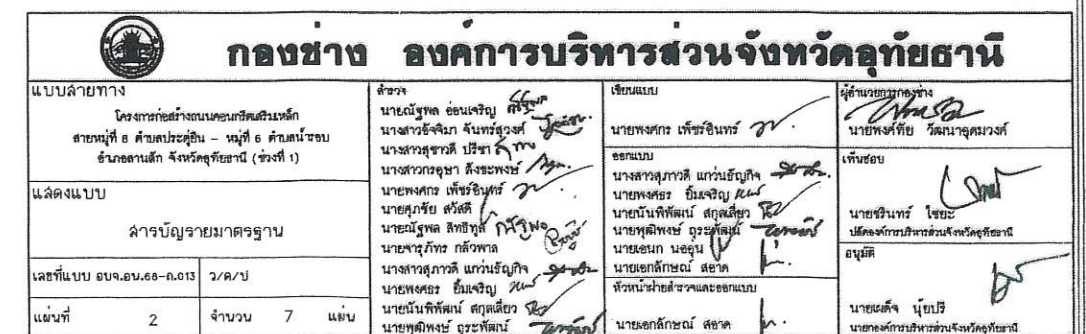 กองช่าง องค์การบริหารส่วนจังหวัดอุทัยธานี
แบบสายทาง
โครงการก่อสร้างถนนคอนกรีตเสริมเหล็ก
สายหมู่ที่ 8 ตำบลประดู่ยืน - หมู่ที่ 6 ตำบลน้ำรอบ
อำเภอลานสัก จังหวัดอุทัยธานี (ช่วงที่ 1)
แสดงแบบ
สารบัญรายมาตรฐาน
เลขที่แบบ อบจ.อน.68-ถ.013 ว/ด/ป
แผ่นที่ 2 จำนวน 7 แผ่น
สำรวจ
นายณัฐพล อ่อนเจริญ
นางสาวอัจจิมา จันทร์สุวงศ์
นางสาวสุชาวดี ปรีชา
นางสาวกรอุษา สังขะพงษ์
นายพงศกร เพ็ชร์อินทร์
นายศุภชัย สวัสดี
นายณัฐพล สิทธิทูล
นายจารุภัทร กล้วพาล
นางสาวสุภาวดี แก่วนธัญกิจ
นายพงศธร ยิ้มเจริญ
นายนันพิพัฒน์ สกุลเลี่ยว
นายพุฒิพงษ์ ถุระพัฒน์
เขียนแบบ
นายพงศกร เพ็ชร์อินทร์
ออกแบบ
นางสาวสุภาวดี แก่วนธัญกิจ
นายพงศธร ยิ้มเจริญ
นายนันพิพัฒน์ สกุลเลี่ยว
นายพุฒิพงษ์ ถุระพัฒน์
นายเอนก นออุ่น
นายเอกลักษณ์ สอาด
หัวหน้าฝ่ายสำรวจและออกแบบ
นายเอกลักษณ์ สอาด
ผู้อำนวยการกองช่าง
นายพงศ์ทัย วัฒนาอุดมวงศ์
เห็นชอบ
นายชรินทร์ ไชยะ
ปลัดองค์การบริหารส่วนจังหวัดอุทัยธานี
อนุมัติ
นายเผด็จ นุ้ยปรี
นายกองค์การบริหารส่วนจังหวัดอุทัยธานี